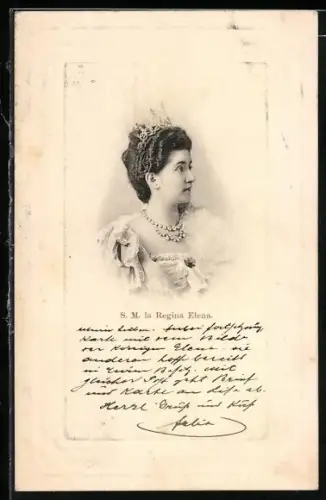 S. M. la Regina Elena.
Meine Lieben. Anbei Fortsetzung
Karte mit dem Bilde
der Königin Elena. Die
anderen hoff bereits
in Euren Besitz. Mit
gleicher Post geht Brief
und Karte an ab.
Herzl Gruß und Kuß